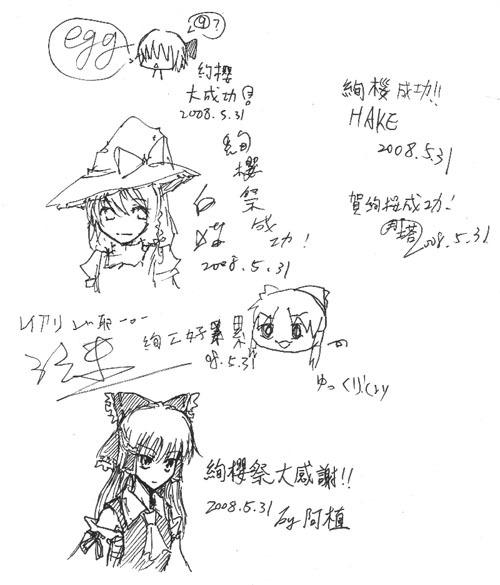 egg
⑨?
絢櫻
大成功!
2008.5.31
絢櫻祭成功!
2008.5.31
絢櫻成功!!
HAKE
2008.5.31
賀絢櫻成功!
2008.5.31
絢工好累
08.5.31
ゆっくり
絢櫻祭大感謝!!
2008.5.31
by 阿植